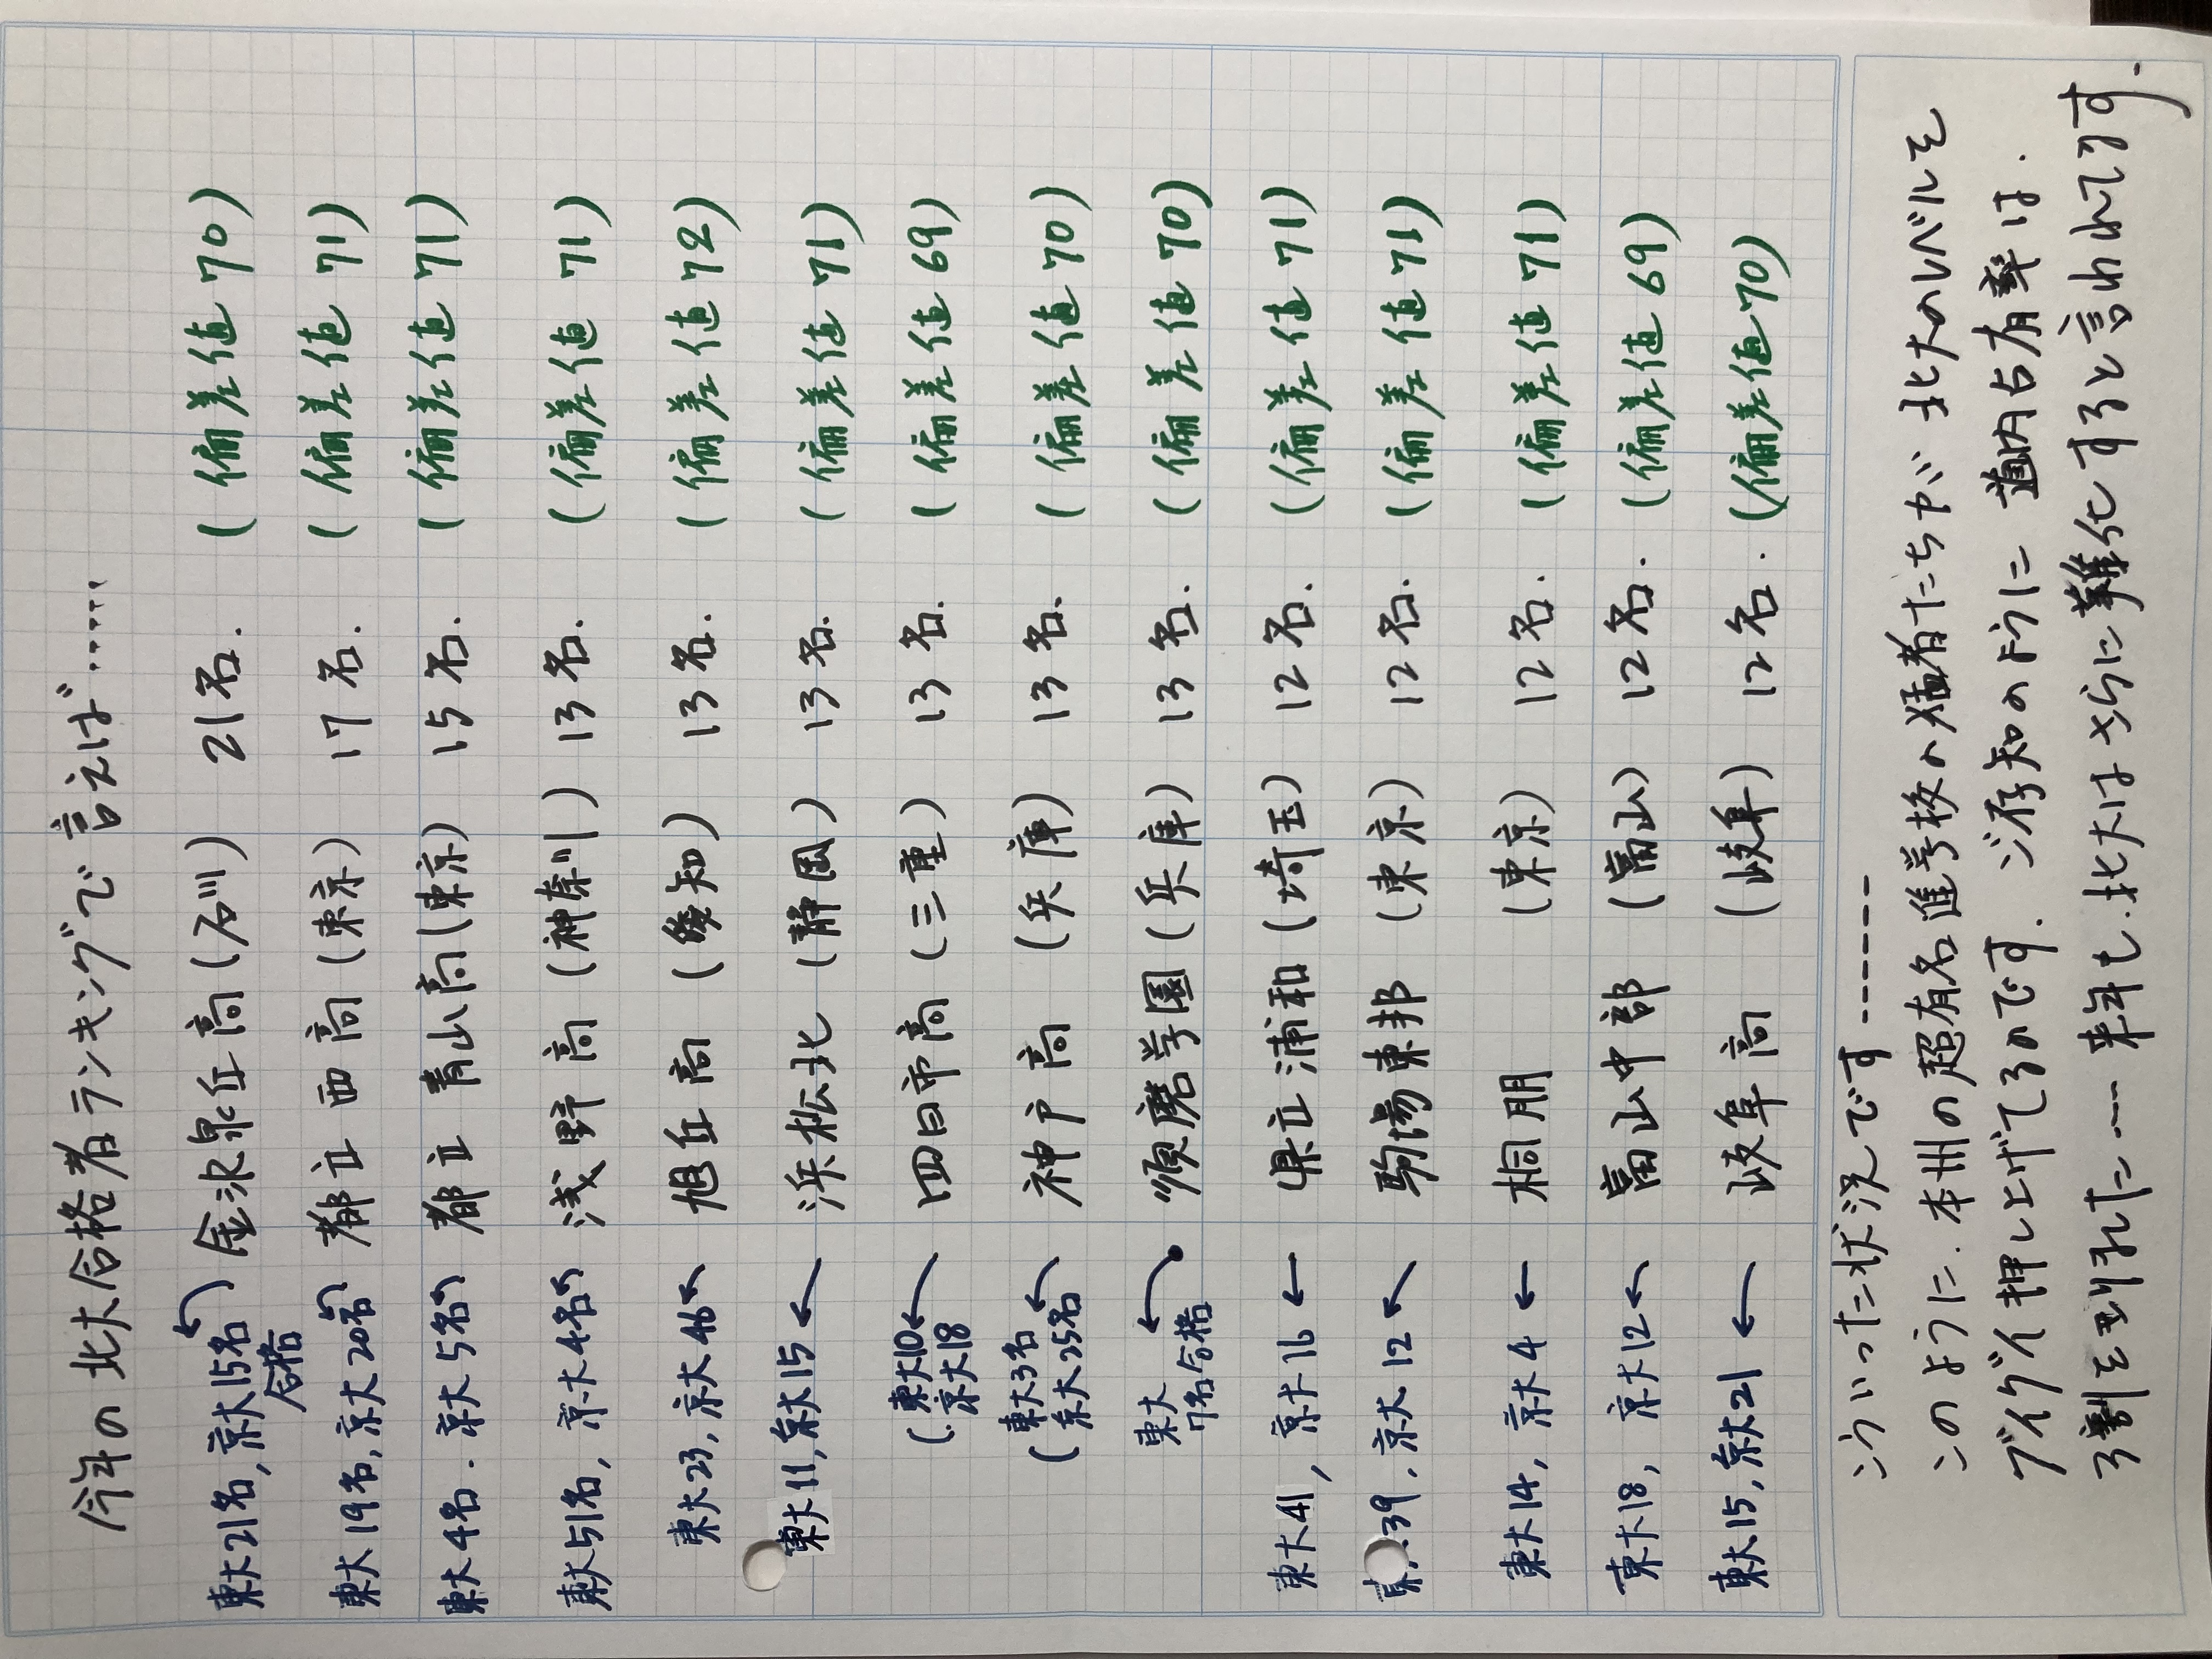 今年の北大合格者ランキングで言えば……
東大21名, 京大15名合格 金沢泉丘高 (石川) 21名. (偏差値 70)
東大19名, 京大20名 都立 西高 (東京) 17名. (偏差値 71)
東大4名. 京大5名 都立 青山高 (東京) 15名. (偏差値 71)
東大51名, 京大4名 浅野高 (神奈川) 13名. (偏差値 71)
東大23, 京大46 旭丘高 (愛知) 13名. (偏差値 72)
東大11, 京大15 浜松北 (静岡) 13名. (偏差値 71)
(東大10 京大18 四日市高 (三重) 13名. (偏差値 69)
(東大3名 京大25名 神戸高 (兵庫) 13名. (偏差値 70)
東大7名合格 須磨学園 (兵庫) 13名. (偏差値 70)
東大41, 京大16 県立浦和 (埼玉) 12名. (偏差値 71)
東 39, 京大12 駒場東邦 (東京) 12名. (偏差値 71)
東大14, 京大4 桐朋 (東京) 12名. (偏差値 71)
東大18, 京大12 富山中部 (富山) 12名. (偏差値 69)
東大15, 京大21 岐阜高 (岐阜) 12名. (偏差値 70)
こういった状況です------
このように. 本州の超有名進学校の猛者たちが 北大のレベルを
グイグイ押し上げてるのです. ご存知のように 道内占有率は.
3割を割れた…… 来年も. 北大はさらに難化すると言われてます.